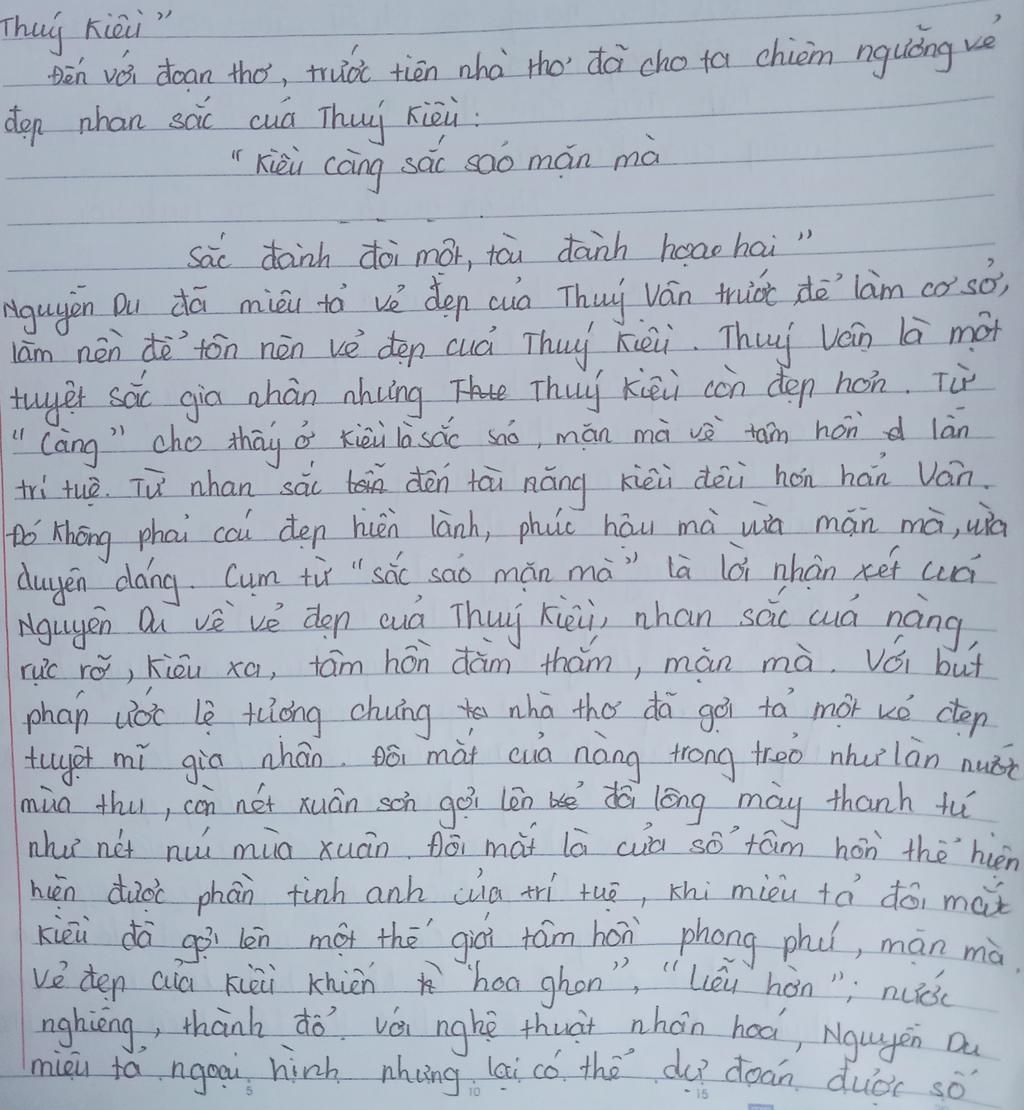 Thuý Kiều"
Đến với đoạn thơ, trước tiên nhà thơ đã cho ta chiêm ngưỡng vẻ
đẹp nhan sắc của Thuý Kiều:
"Kiều càng sắc sảo mặn mà
- - -
Sắc đành đòi một, tài đành hoạ hai"
Nguyễn Du đã miêu tả vẻ đẹp của Thuý Vân trước để làm cơ sở,
làm nền để tôn nên vẻ đẹp của Thuý Kiều. Thuý Vân là một
tuyệt sắc gia nhân nhưng Thuý Kiều còn đẹp hơn. Từ
"Càng" cho thấy ở Kiều là sắc sảo, mặn mà về tâm hồn lẫn
trí tuệ. Từ nhan sắc đến tài năng Kiều đều hơn hẳn Vân.
Đó không phải cái đẹp hiền lành, phúc hậu mà vừa mặn mà, vừa
duyên dáng. Cụm từ "sắc sảo mặn mà" là lời nhận xét của
Nguyễn Du về vẻ đẹp của Thuý Kiều, nhan sắc của nàng
rực rỡ, kiêu xa, tâm hồn đằm thắm, mặn mà. Với bút
pháp ước lệ tượng chưng nhà thơ đã gợi tả một vẻ đẹp
tuyệt mĩ gia nhân. Đôi mắt của nàng trong trẻo như làn nước
mùa thu, còn nét xuân sơn gợi lên đôi lông mày thanh tú
như nét núi mùa xuân. Đôi mắt là cửa sổ tâm hồn thể hiện
hiện được phần tinh anh của trí tuệ, khi miêu tả đôi mắt
Kiều đã gợi lên một thế giới tâm hồn phong phú, mặn mà.
Vẻ đẹp của Kiều khiến "hoa ghen", "liễu hờn"; nước
nghiêng, thành đổ với nghệ thuật nhân hoá, Nguyễn Du
miêu tả ngoại hình nhưng lại có thể dự đoán được số
5 10 15